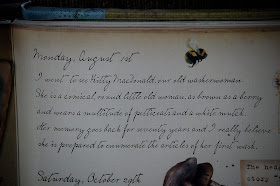 Monday, August 1st
I went to see Kitty MacDonald, our old washerwoman.
She is a comical, round little old woman, as brown as a berry
and wears a multitude of petticoats and a white mutch.
Her memory goes back for seventy years and I really believe
she is prepared to enumerate the articles of her first wash.
Saturday, October 29th
The hea
story